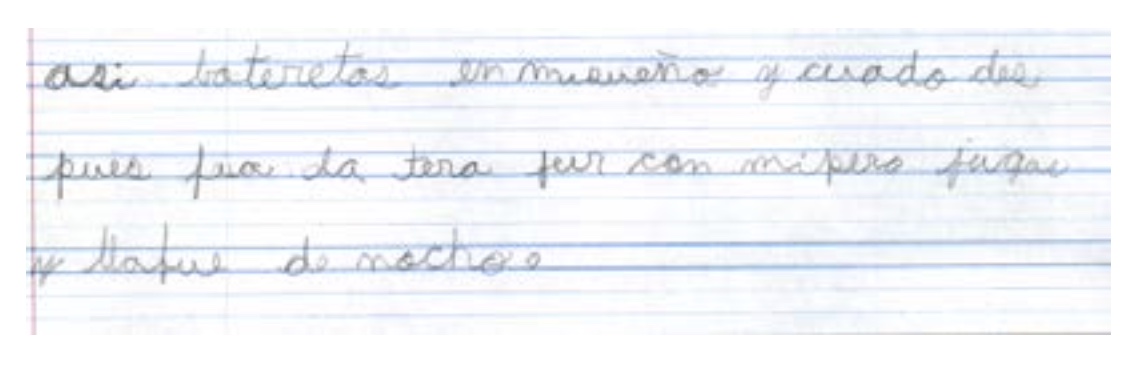 asi bateretas en misueño y cuado des
pues fua da tera fur con mi pero jugar
y llafue de nocho.